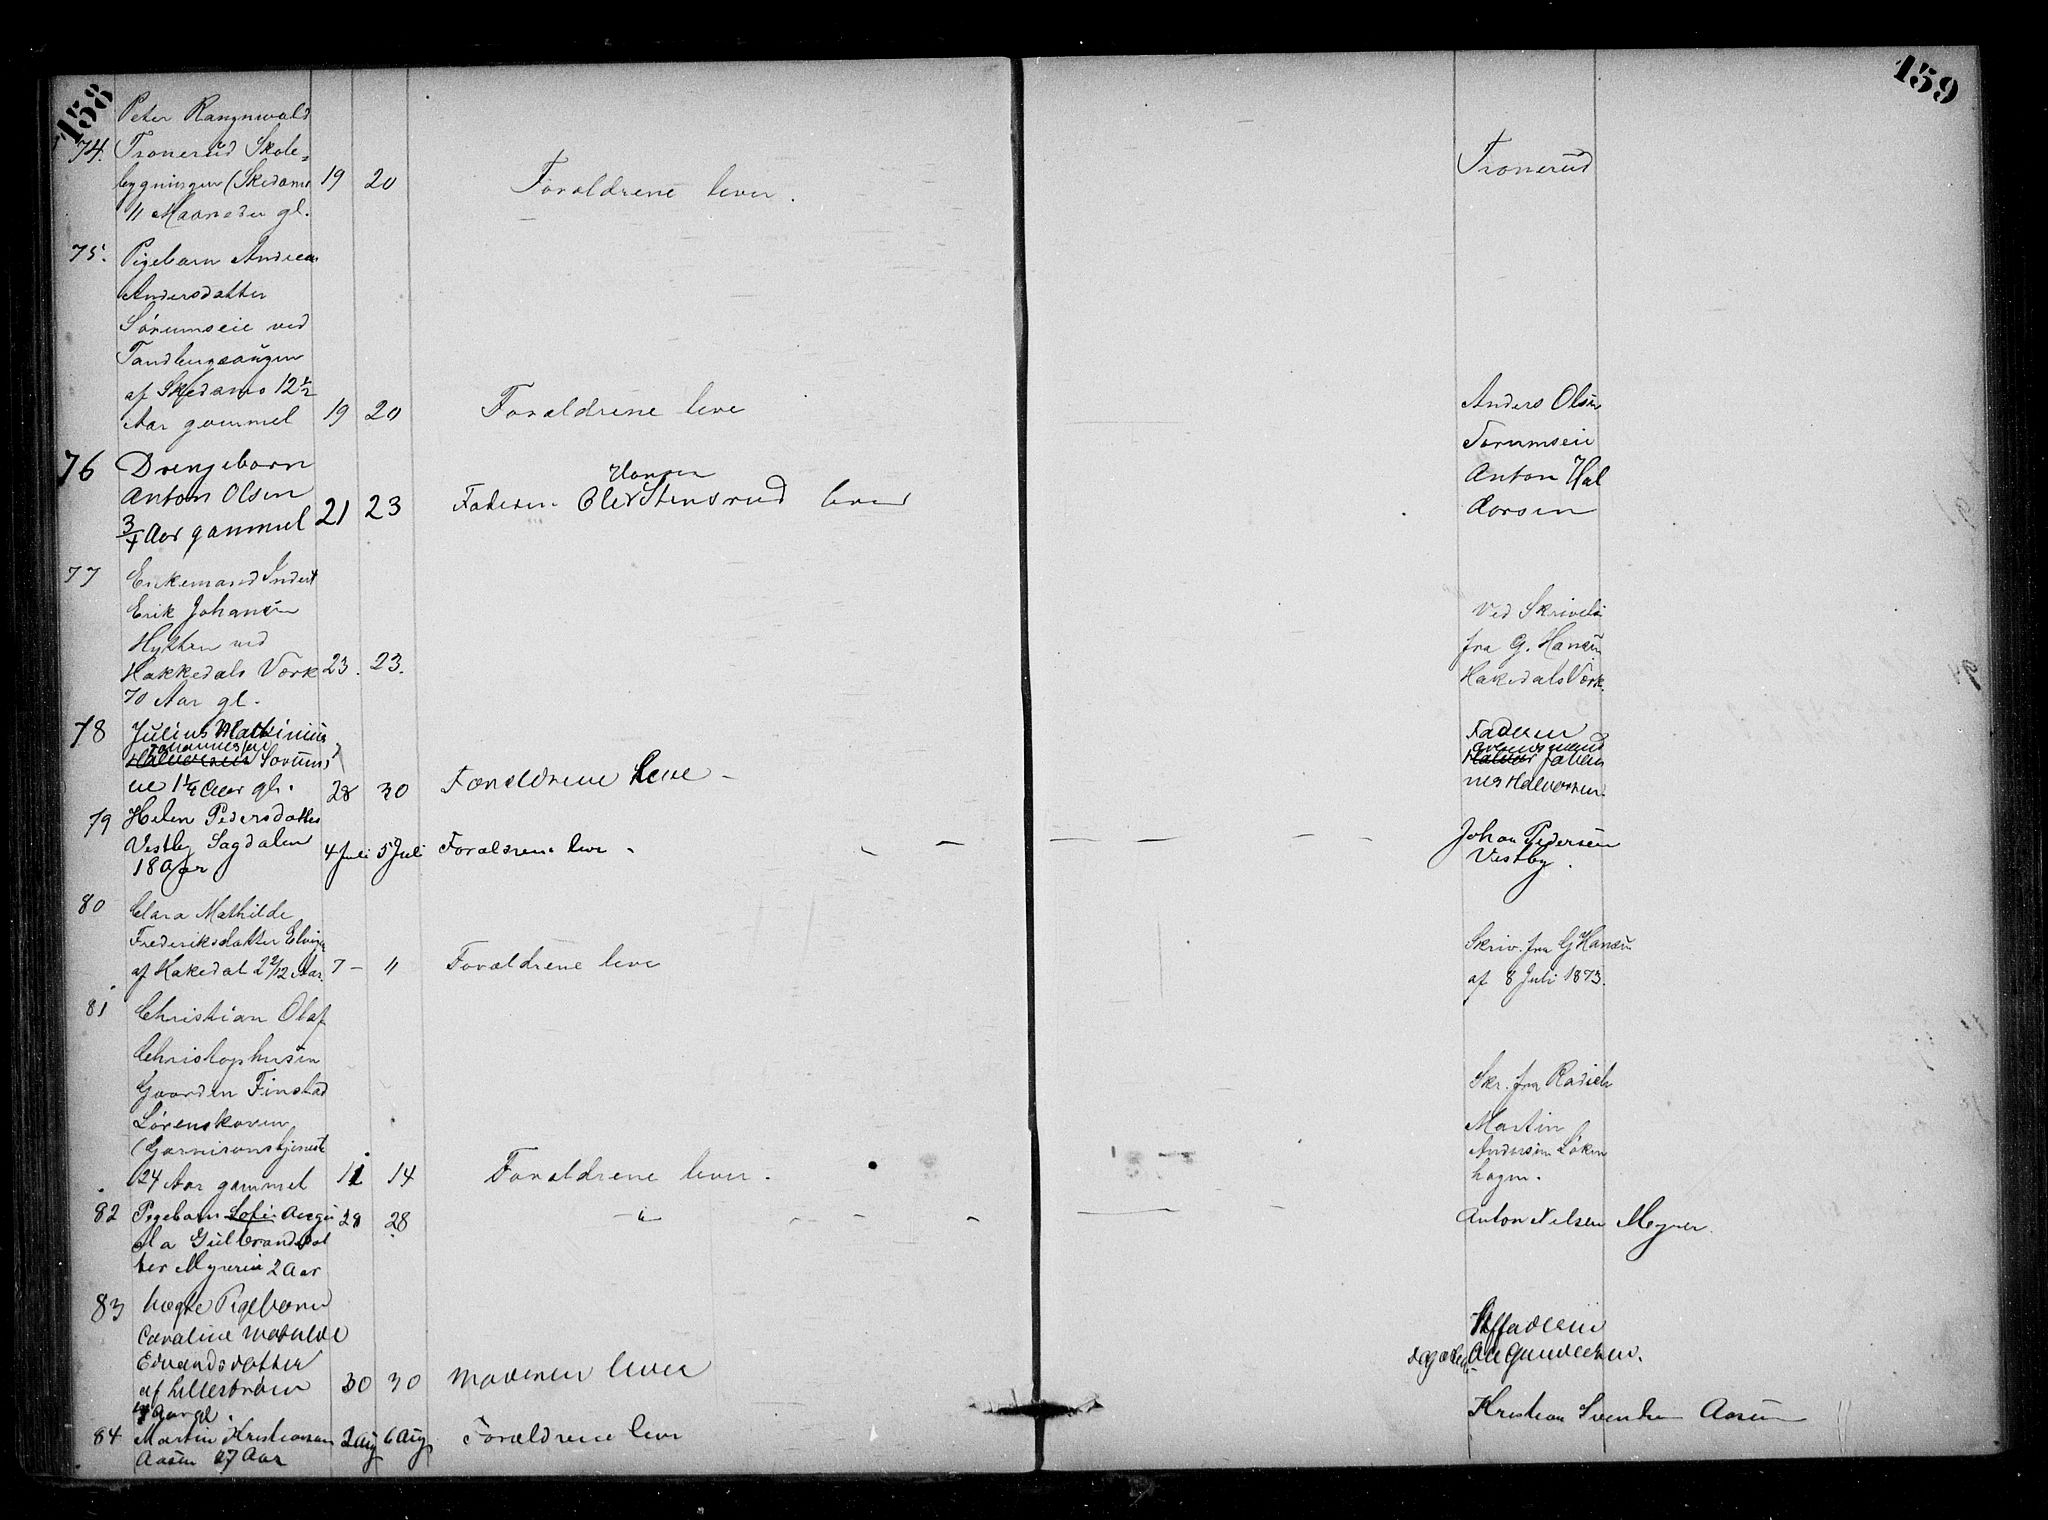 158
159
Peter Rangnwald
74. Tronerud Skole=
bygningen (Skedsmo 19 20 Forældrene lever. Tronerud
11 Maaneder gl.
75. Pigebarn Andrea
Andersdatter
Sørumseie ved
Tandbergsaugen
af Skedsmo 12½
Aar gammel 19 20 Forældrene leve Anders Olsen
Sørumseie
76 Drengebarn
Anton Olsen
¾ Aar gammel 21 23 Faderen Ole Hansen Stensrud lever Anton Hal
vorsen
77 Enkemand Inderst
Erik Johansen
Hytten ved
Hakkedals Værk 23. 23.
70 Aar gl.
Ved Skrivelse
fra G. Hansen
Hakedals Værk.
78 Julius Martinius
Johannesen
Halvorsen Sørums
eie 1¼ Aar gl. 28 30 Forældrene leve –
Faderen
Halvor Johan
nes Halvorsen.
79 Helen Pedersdatter
Vestby Sagdalen 4 Juli 5 Juli Forældrene leve – Johan Pedersen
18 Aar Vestby.
80 Clara Mathilde
Frederiksdatter
af Hakedal 2 2/12 Aar. 7 – " Forældrene leve
Skriv. fra G Hansen
af 8 Juli 1873.
81 Christian Olaf
Christophersen
Gaarden Finstad
Lørenskoven
(Garnisonstjeneste
24 Aar gammel 11 14 Forældrene lever.
Skr. fra Radich
Martin
Andersen Løken
hagen.
82 Pigebarn Sofie Augu 28 28 – " – Anton Nilsen Meyer.
sta Gulbrandsdat
ter Myrerie 2 Aar
83 uægte Pigebarn
Caroline Matilde
Edvardsdatter
af Lillestrøm 30 30 Moderen lever
Aar gl.
Af faderen
84 Martin Kristiansen 2 Aug 6 Aug Forældrene leve Kristian Svendsen Aasen
Aasen 27 Aar